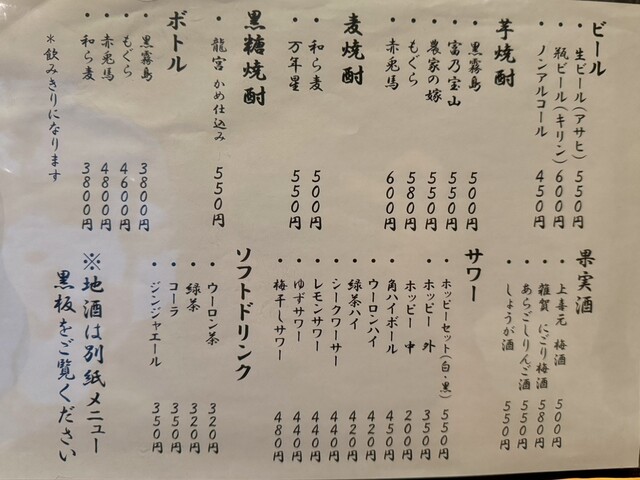 ビール
・生ビール(アサヒ) 550円
・瓶ビール(キリン) 600円
・ノンアルコール 450円
芋焼酎
・黒霧島 500円
・富乃宝山 550円
・農家の嫁 550円
・もぐら 580円
・赤兎馬 600円
麦焼酎
・和ら麦 500円
・万年星 550円
黒糖焼酎
・龍宮 かめ仕込み 550円
ボトル
・黒霧島 3800円
・もぐら 4600円
・赤兎馬 4800円
・和ら麦 3800円
※飲みきりになります
果実酒
・上喜元 梅酒 500円
・雑賀 にごり梅酒 580円
・あらごしりんご酒 550円
・しょうが酒 550円
サワー
・ホッピーセット(白・黒) 550円
・ホッピー 外 350円
・ホッピー 中 200円
・角ハイボール 450円
・ウーロンハイ 420円
・緑茶ハイ 420円
・シークワーサー 440円
・レモンサワー 440円
・ゆずサワー 440円
・梅干しサワー 480円
ソフトドリンク
・ウーロン茶 320円
・緑茶 320円
・コーラ 350円
・ジンジャエール 350円
※地酒は別紙メニュー
黒板をご覧ください